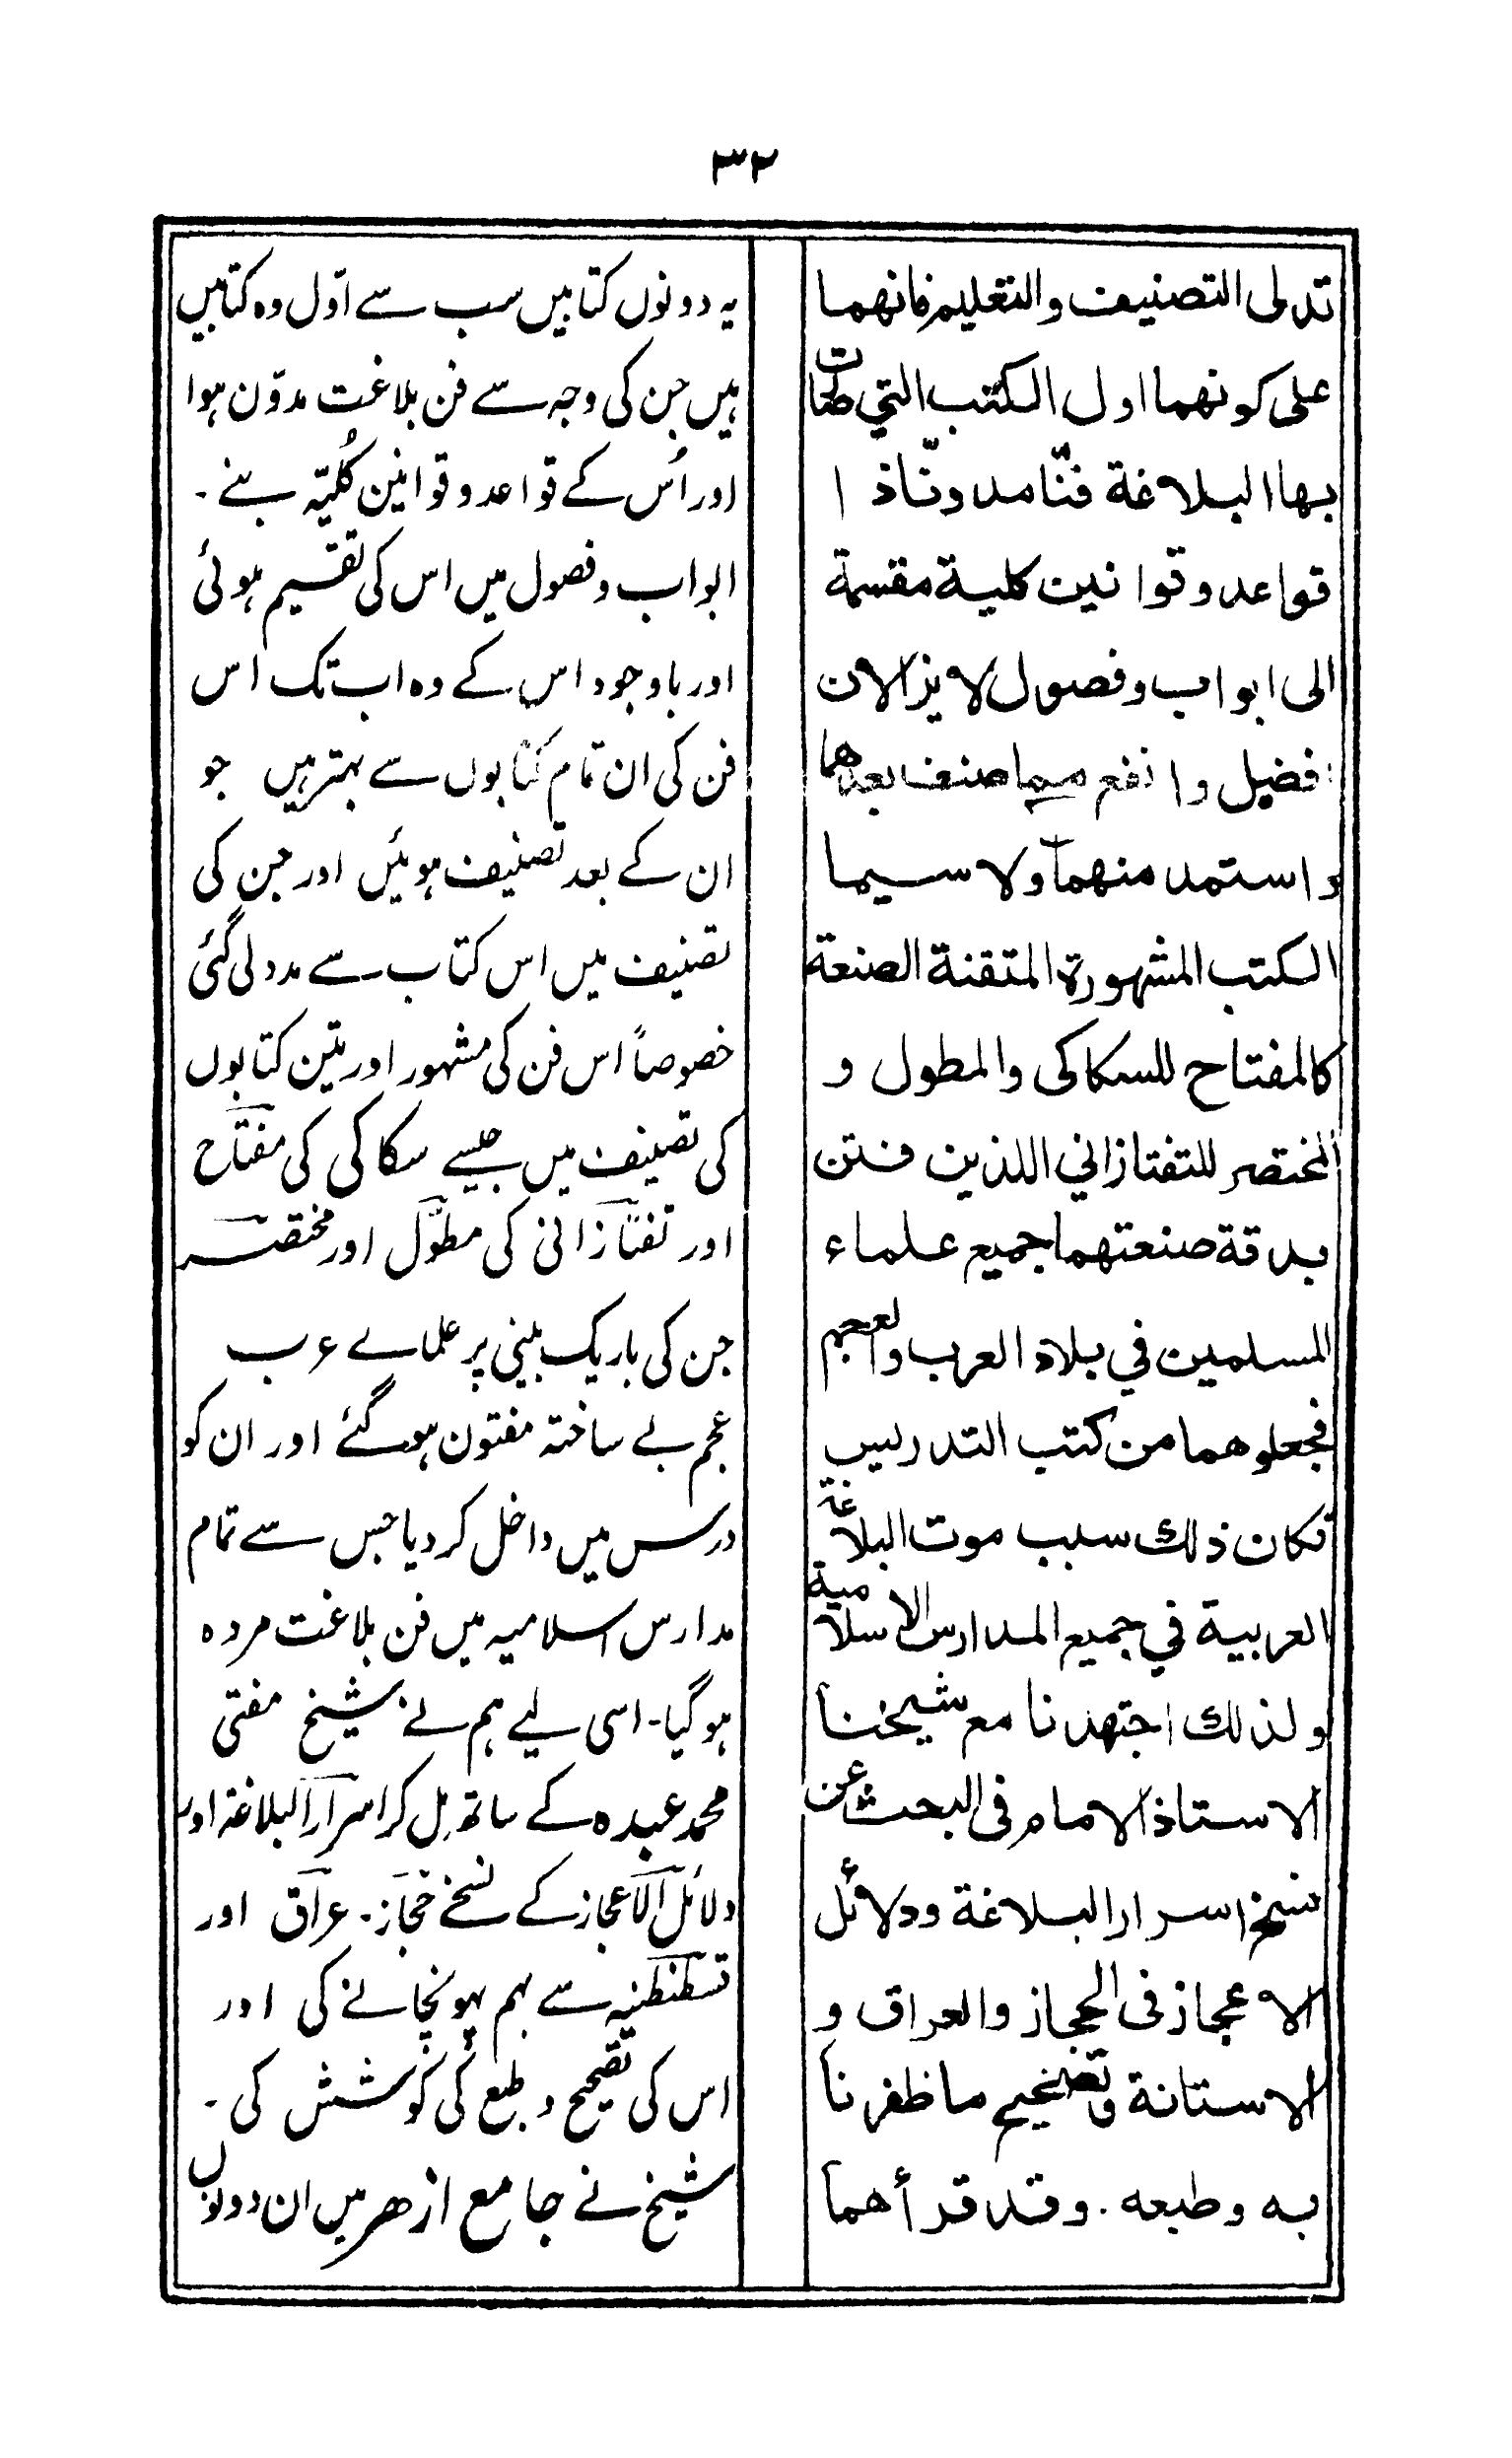 ٣٢
تدلى التصنيف والتعليم فانهما
على كونهما اول الكتب التي كانت
بها البلاغة فنّا مدونّا ذا
قواعد وقوانين كلية مقسمة
الى ابواب وفصول لا يزالان
افضل وانفع مما صنف بعدهما
واستمد منهما ولا سيما
الكتب المشهورة المتقنة الصنعة
كالمفتاح للسكاكى والمطول و
المختصر للتفتازاني اللذين فتن
بدقة صنعتهما جميع علماء
المسلمين في بلاد العرب والعجم
فجعلوهما من كتب التدريس
فكان ذلك سبب موت البلاغة
العربية في جميع المدارس الاسلامية
ولذلك اجتهدنا مع شيخنا
الاستاذ الامام فى البحث عن
نسخ اسرار البلاغة ودلائل
الاعجاز فى الحجاز والعراق و
الاستانة وتصحيح ما ظفرنا
به وطبعه . وقد قرأهما
یہ دونوں کتابیں سب سے اوّل وہ کتابیں
ہیں جن کی وجہ سے فن بلاغت مدوّن ہوا
اور اُس کے قواعد و قوانین کُلیّہ بنے ۔
ابواب و فصول میں اس کی تقسیم ہوئی
اور باوجود اس کے وہ اب تک اس
فن کی ان تمام کتابوں سے بہتر ہیں جو
ان کے بعد تصنیف ہوئیں اور جن کی
تصنیف میں اس کتاب سے مدد لی گئی
خصوصاً اس فن کی مشہور اور متین کتابوں
کی تصنیف میں جیسے سکاکی کی مفتاح
اور تفتازانی کی مطوّل اور مختصر
جن کی باریک بینی پر علماے عرب
عجم بے ساختہ مفتون ہو گئے اور ان کو
درس میں داخل کر دیا جس سے تمام
مدارس اسلامیہ میں فن بلاغت مردہ
ہو گیا ۔ اسی لیے ہم نے شیخ مفتی
محمد عبدہ کے ساتھ مل کر اسرار البلاغۃ اور
دلائل الاعجاز کے نسخے حجاز ۔ عراق اور
قسطنطنیہ سے بہم پہونچانے کی اور
اس کی تصحیح و طبع کی کوشش کی ۔
شیخ نے جامع ازھر میں ان دونوں